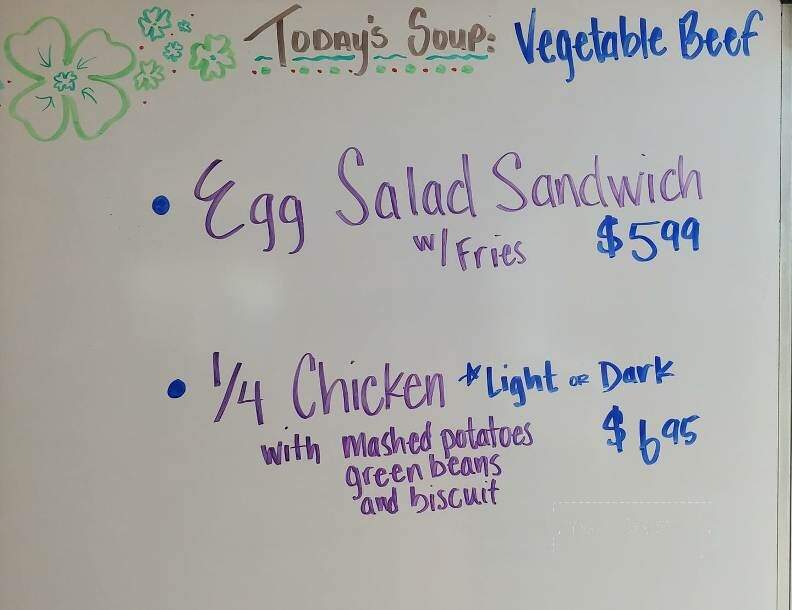 Today's Soup: Vegetable Beef
• Egg Salad Sandwich
w/ Fries $5.99
• 1/4 Chicken *Light or Dark
with mashed potatoes $6.95
green beans
and biscuit